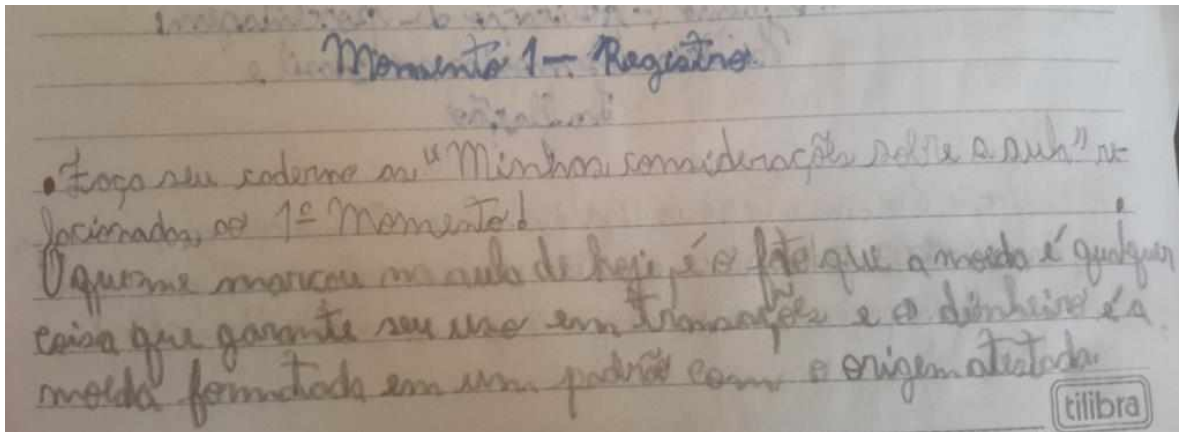 Momento 1 - Registro
• Faça seu caderno as "Minhas considerações sobre a aula" re
lacionadas, ao 1º Momento!
O que me marcou na aula de hoje, é o fato que a moeda é qualquer
coisa que garante seu uso em transações e o dinheiro é a
moeda formatada em um padrão com a origem atestada.
tilibra